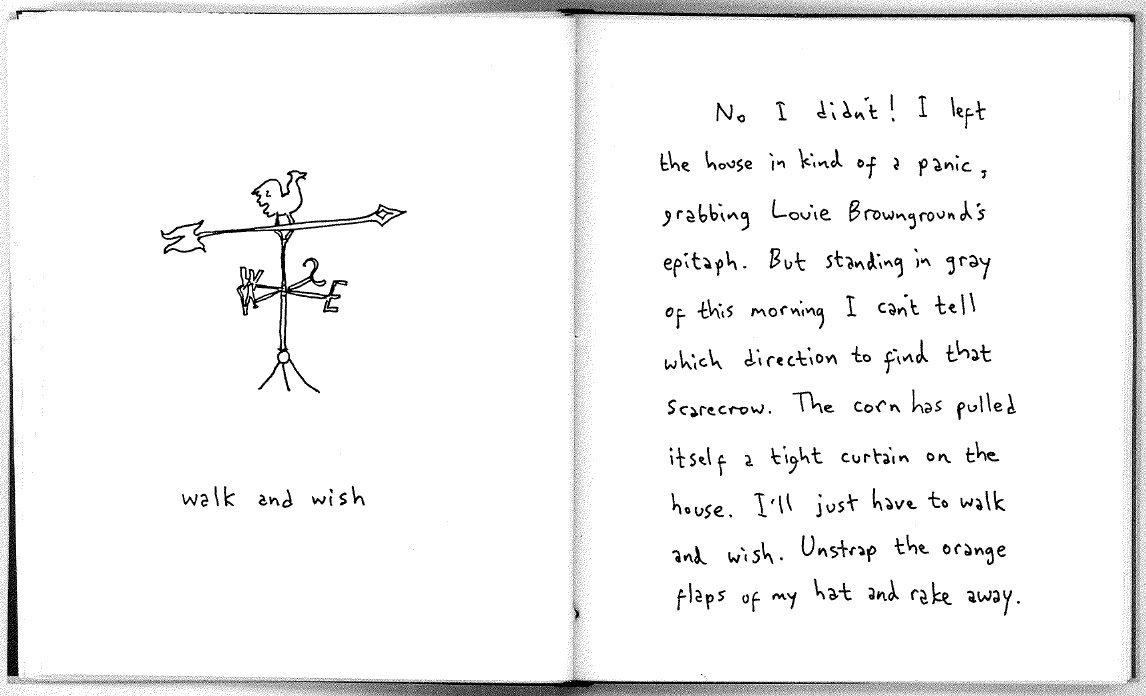 W
E
walk and wish
No I didn't! I left
the house in kind of a panic,
grabbing Louie Brownground's
epitaph. But standing in gray
of this morning I can't tell
which direction to find that
scarecrow. The corn has pulled
itself a tight curtain on the
house. I'll just have to walk
and wish. Unstrap the orange
flaps of my hat and rake away.